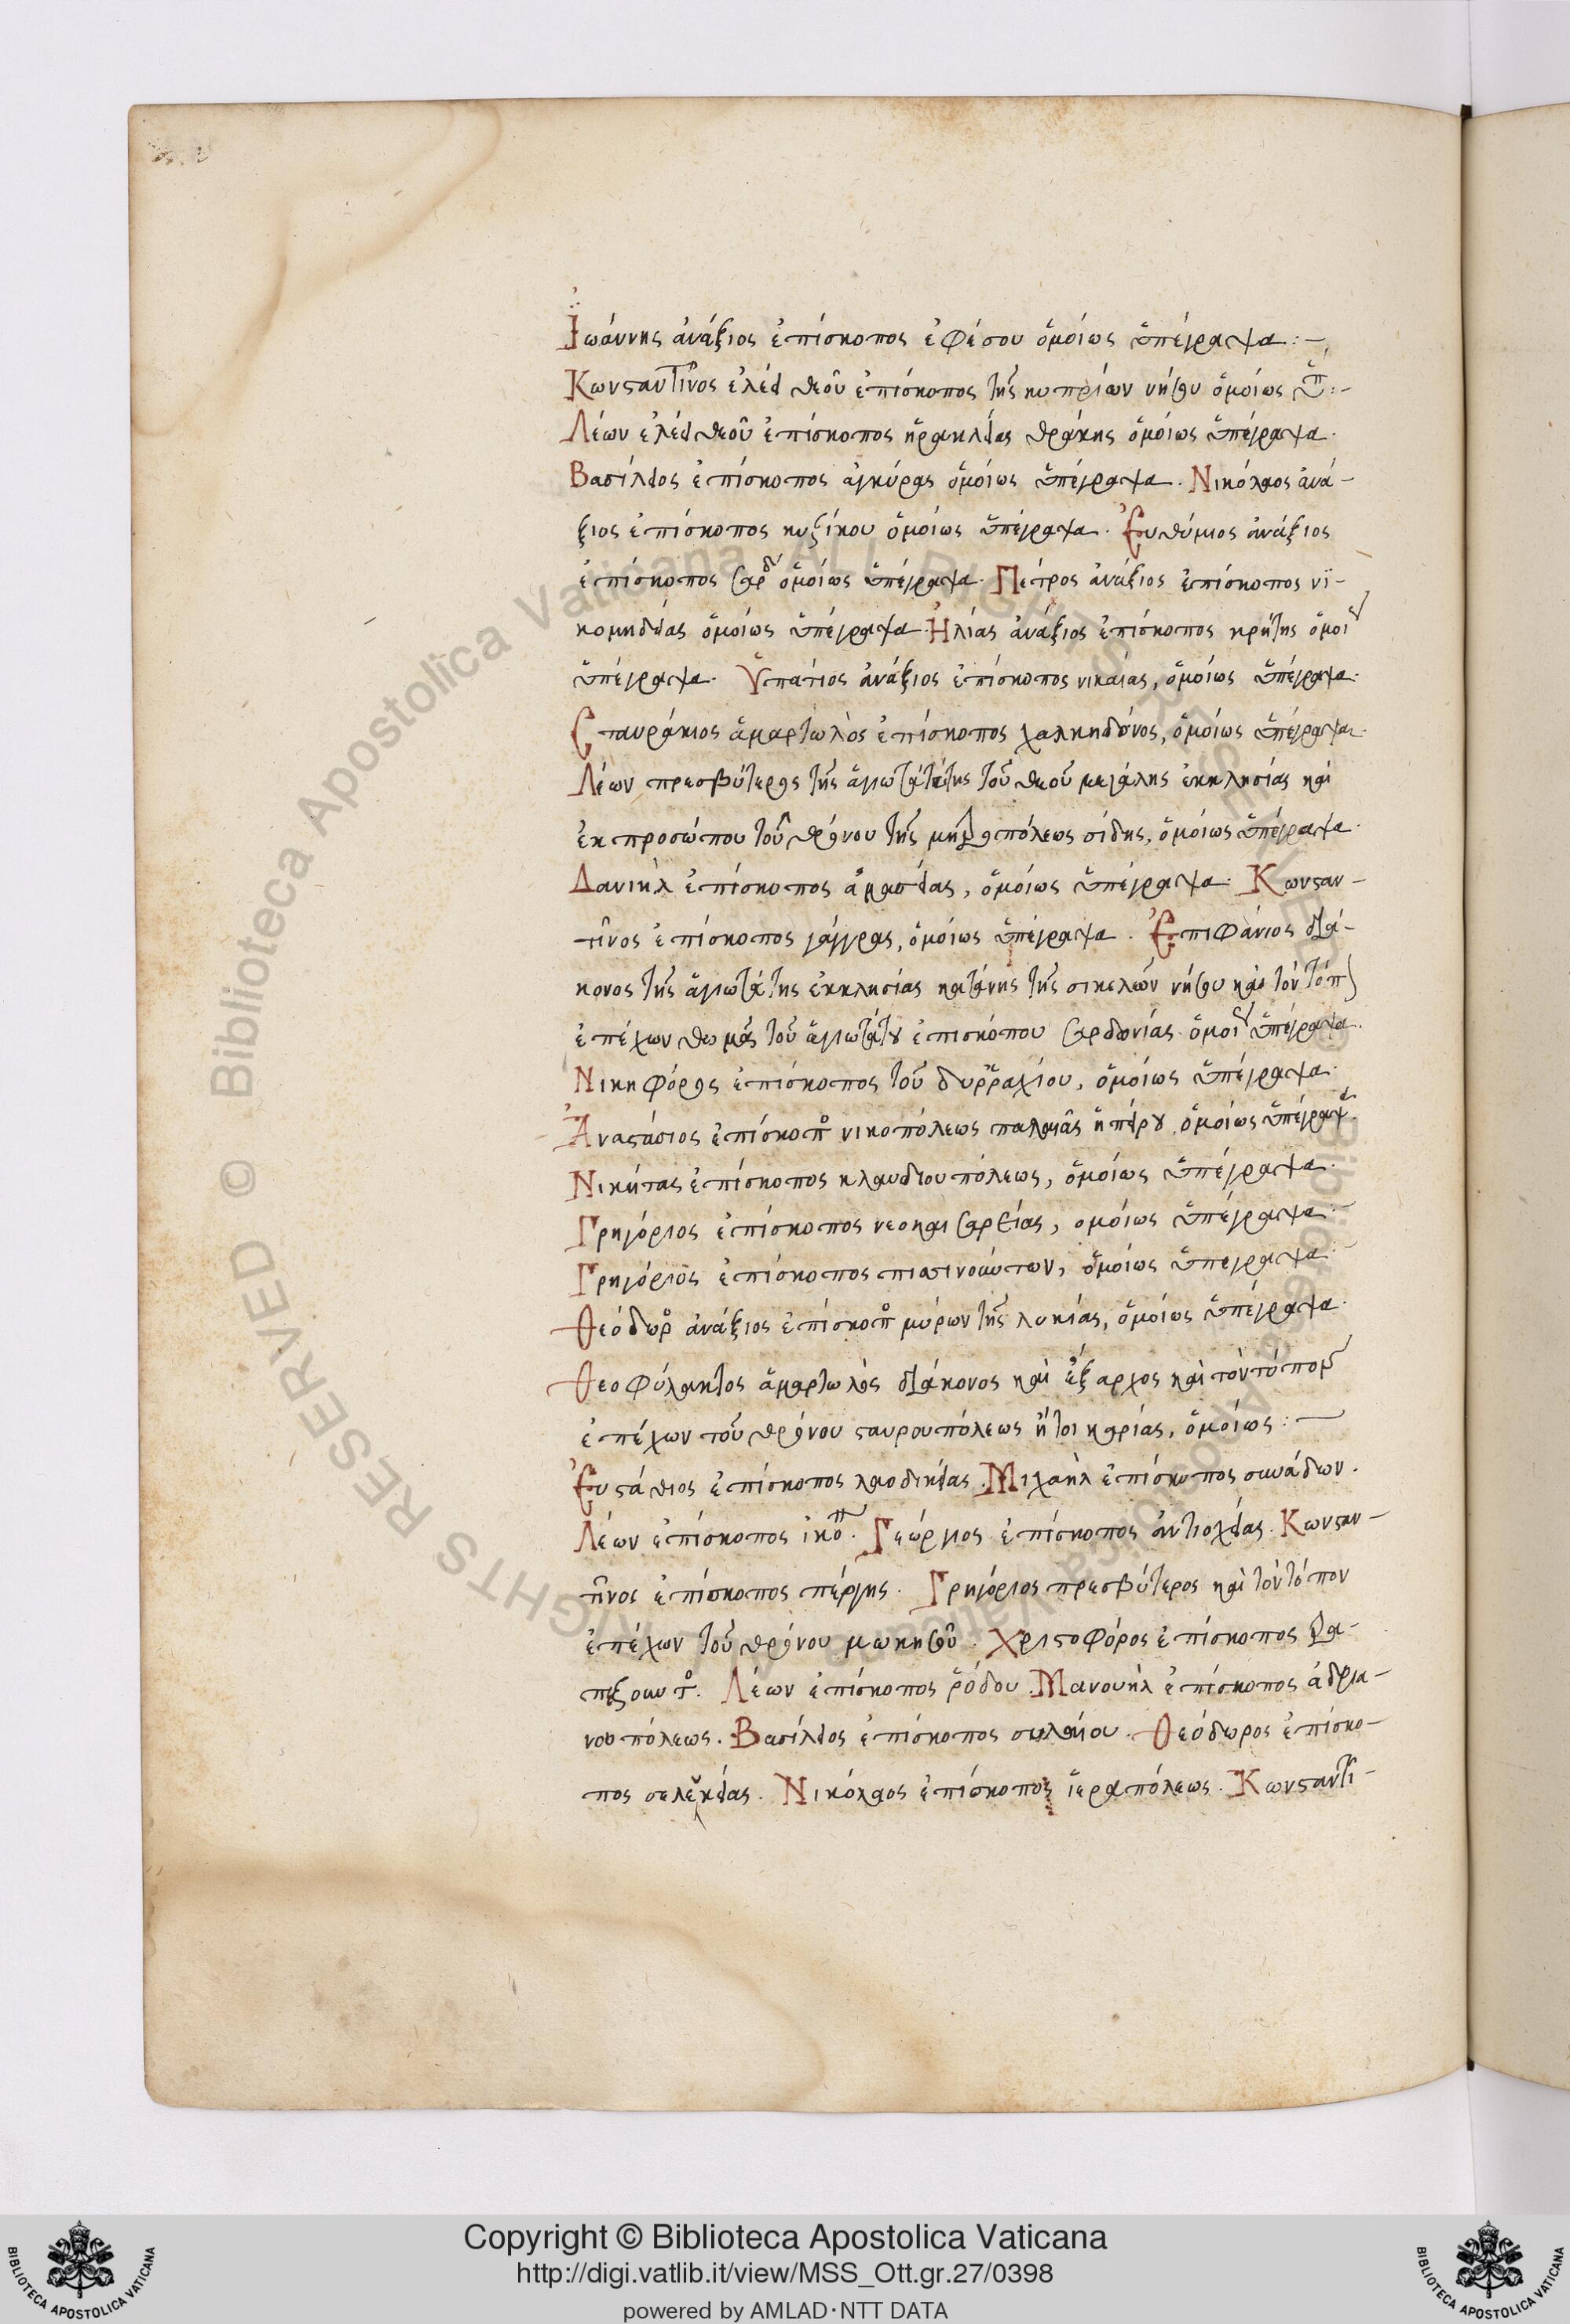 Ἰωάννης ἀνάξιος ἐπίσκοπος ἐφέσου ὁμοίως ὑπέγραψα :-
Κωνσταντῖνος ἐλέει θεοῦ ἐπίσκοπος τῆς κυπρίων νήσου ὁμοίως ὑπ :-
Λέων ἐλέει θεοῦ ἐπίσκοπος ἡρακλείας θράκης ὁμοίως ὑπέγραψα.
Βασίλειος ἐπίσκοπος ἀγκύρας ὁμοίως ὑπέγραψα. Νικόλαος ἀνά-
ξιος ἐπίσκοπος κυζίκου ὁμοίως ὑπέγραψα. Ἐυθύμιος ἀνάξιος
ἐπίσκοπος σάρδ ὁμοίως ὑπέγραψα. Πέτρος ἀνάξιος ἐπίσκοπος νϊ-
κομηδείας ὁμοίως ὑπέγραψα. Ἠλίας ἀνάξιος ἐπίσκοπος κρήτης ὁμοί
ὑπέγραψα. Ὑπάτιος ἀνάξιος ἐπίσκοπος νικαίας, ὁμοίως ὑπέγραψα.
Σταυράκιος ἁμαρτωλὸς ἐπίσκοπος χαλκηδόνος, ὁμοίως ὑπέγραψα.
Λέων πρεσβύτερος τῆς ἁγιωτάτης τοῦ θεοῦ μεγάλης ἐκκλησίας καὶ
ἐκ προσώπου τοῦ θρόνου τῆς μητροπόλεως σίδης, ὁμοίως ὑπέγραψα.
Δανιὴλ ἐπίσκοπος ἀμασείας, ὁμοίως ὑπέγραψα. Κωνσταν-
τῖνος ἐπίσκοπος γάγγρας, ὁμοίως ὑπέγραψα. Ἐπιφάνιος διά-
κονος τῆς ἁγιωτάτης ἐκκλησίας κατάνης τῆς σικελῶν νήσου καὶ τὸν τόπ
ἐπέχων θωμᾶ τοῦ ἁγιωτάτου ἐπισκόπου σαρδονίας ὁμοί ὑπέγραψα.
Νικηφόρος ἐπίσκοπος τοῦ δυῤῥαχίου, ὁμοίως ὑπέγραψα.
Ἀναστάσιος ἐπίσκοπο νικοπόλεως παλαιᾶς ἠπείρου ὁμοίως ὑπέγραψ.
Νικήτας ἐπίσκοπος κλαυδιουπόλεως, ὁμοίως ὑπέγραψα.
Γρηγόριος ἐπίσκοπος νεοκαισαρείας, ὁμοίως ὑπέγραψα.
Γρηγόριος ἐπίσκοπος πισινούντων, ὁμοίως ὑπέγραψα.
Θεόδωρο ἀνάξιος ἐπίσκοπο μύρων τῆς λυκίας, ὁμοίως ὑπέγραψα.
Θεοφύλακτος ἁμαρτωλὸς διάκονος καὶ ἔξαρχος καὶ τὸν τόπον
ἐπέχων τοῦ θρόνου σταυρουπόλεως ἤτοι καρίας, ὁμοίως :-
Ἐυστάθιος ἐπίσκοπος λαοδικείας. Μιχαὴλ ἐπίσκοπος συνάδων.
Λέων ἐπίσκοπος ἰκο. Γεώργιος ἐπίσκοπος ἀντιοχείας. Κωνσταν-
τῖνος ἐπίσκοπος πέργης. Γρηγόριος πρεσβύτερος καὶ τὸν τόπον
ἐπέχων τοῦ θρόνου μωκησοῦ. Χριστοφόρος ἐπίσκοπος τρα-
πεζουντο. Λέων ἐπίσκοπος ῥόδου. Μανουὴλ ἐπίσκοπος ἀδρια-
νουπόλεως. Βασίλειος ἐπίσκοπος συλαίου. Θεόδωρος ἐπίσκο-
πος σελευκείας. Νικόλαος ἐπίσκοπος ἱεραπόλεως. Κωνσταντῖ-
Copyright © Biblioteca Apostolica Vaticana
http://digi.vatlib.it/view/MSS_Ott.gr.27/0398
powered by AMLAD·NTT DATA